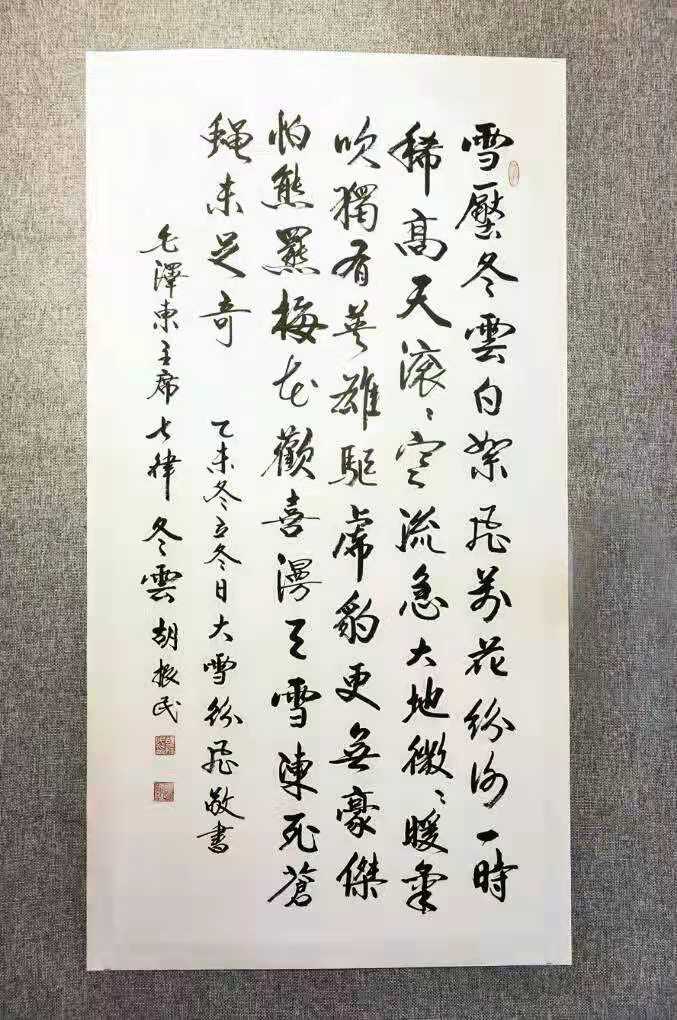 雪壓冬雲白絮飛萬花紛謝一時
稀高天滾〻寒流急大地微〻暖氣
吹獨有英雄驅虎豹更無豪傑
怕熊羆梅花歡喜漫天雪凍死蒼
蠅未足奇
乙未冬立冬日大雪紛飛敬書
毛澤東主席七律冬雲胡振民